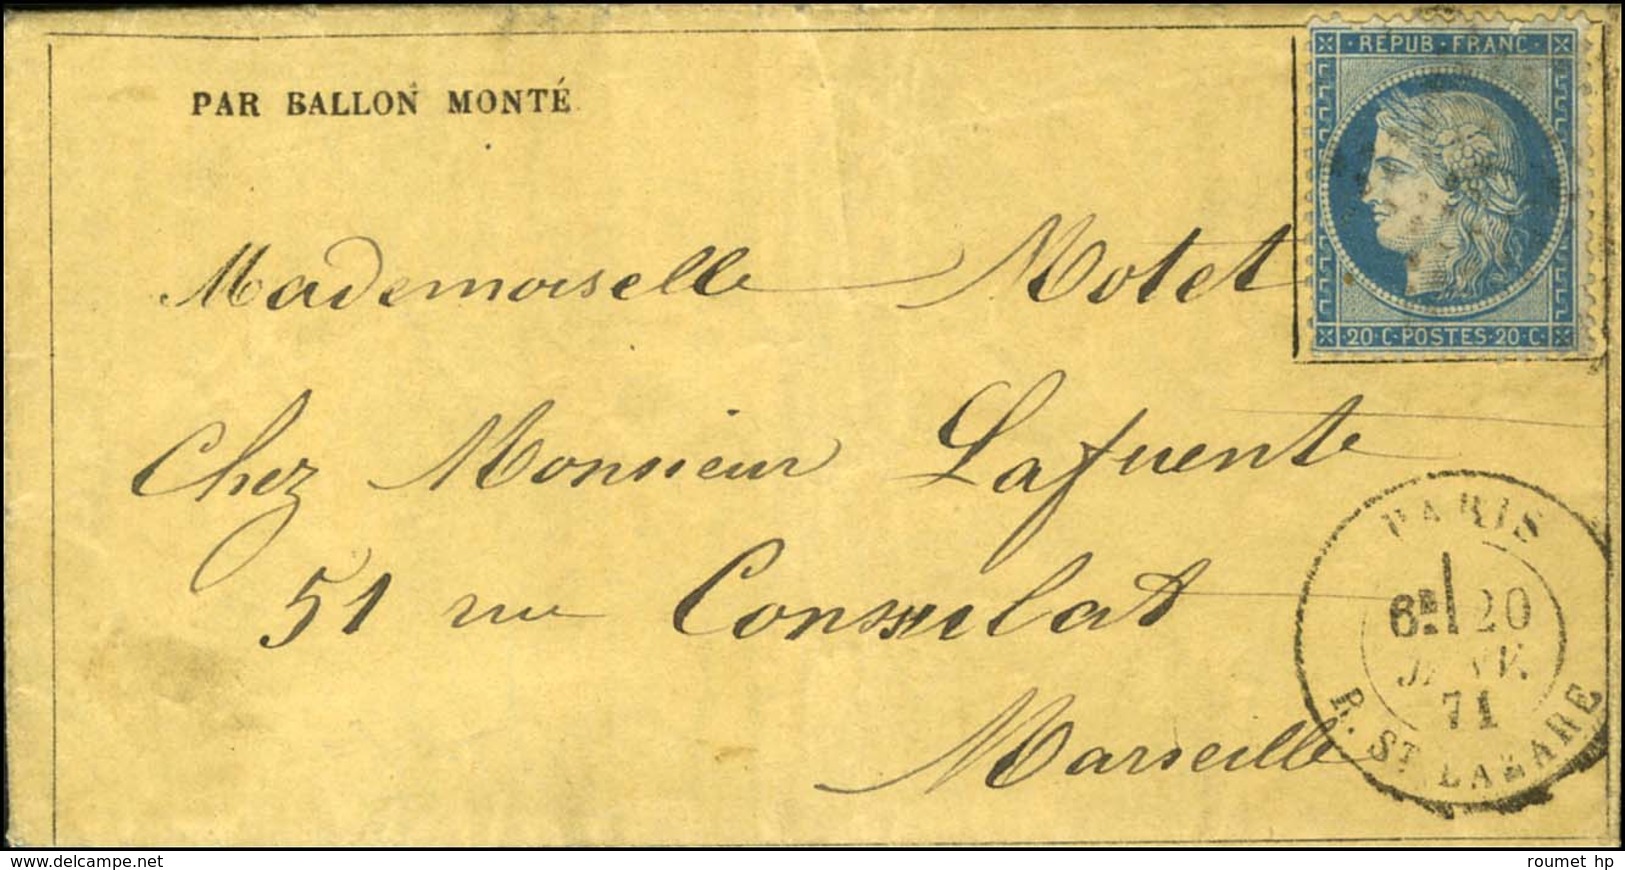 REPUB · FRANC
PAR BALLON MONTÉ
Mademoiselle Motet
20·C·POSTES·20·C·
Chez Monsieur Lafuente
51 rue Consulat
Marseille
PARIS
6E 20
JANV.
71
R. ST LAZARE
www.delcampe.net
roumet hp